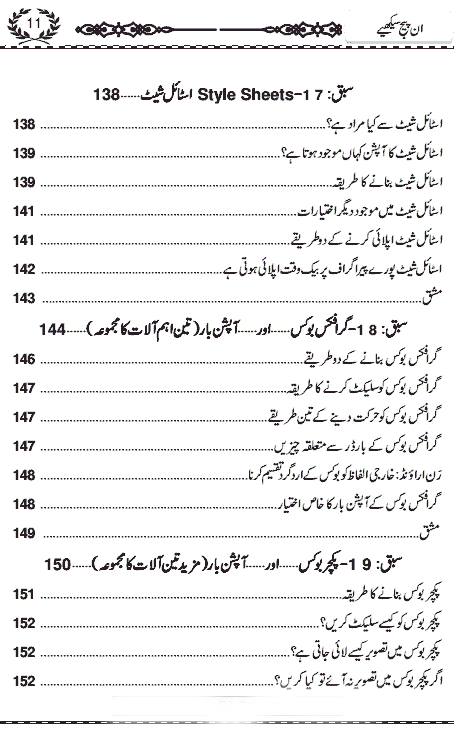 ان پیج سیکھیے 11
سبق: 17-Style Sheets اسٹائل شیٹ......138
اسٹائل شیٹ سے کیا مراد ہے؟ 138
اسٹائل شیٹ کا آپشن کہاں موجود ہوتا ہے؟ 139
اسٹائل شیٹ بنانے کا طریقہ 139
اسٹائل شیٹ میں موجود دیگر اختیارات 141
اسٹائل شیٹ اپلائی کرنے کے دو طریقے 141
اسٹائل شیٹ پورے پیراگراف پر بیک وقت اپلائی ہوتی ہے 142
مشق 143
سبق: 18-گرافکس بوکس......اور......آپشن بار (تین اہم آلات کا مجموعہ)......144
گرافکس بوکس بنانے کے دو طریقے 146
گرافکس بوکس کو سلیکٹ کرنے کا طریقہ 147
گرافکس بوکس کو حرکت دینے کے تین طریقے 147
گرافکس بوکس کے بارڈر سے متعلقہ چیزیں 147
رَن اراؤنڈ: خارجی الفاظ کو بوکس کے اردگرد تقسیم کرنا 148
گرافکس بوکس کے آپشن بار کا خاص اختیار 148
مشق 149
سبق: 19-پکچر بوکس......اور......آپشن بار (مزید تین آلات کا مجموعہ)......150
پکچر بوکس بنانے کا طریقہ 151
پکچر بوکس کو کیسے سلیکٹ کریں؟ 152
پکچر بوکس میں تصویر کیسے لائی جاتی ہے؟ 152
اگر پکچر بوکس میں تصویر نہ آئے تو کیا کریں؟ 152